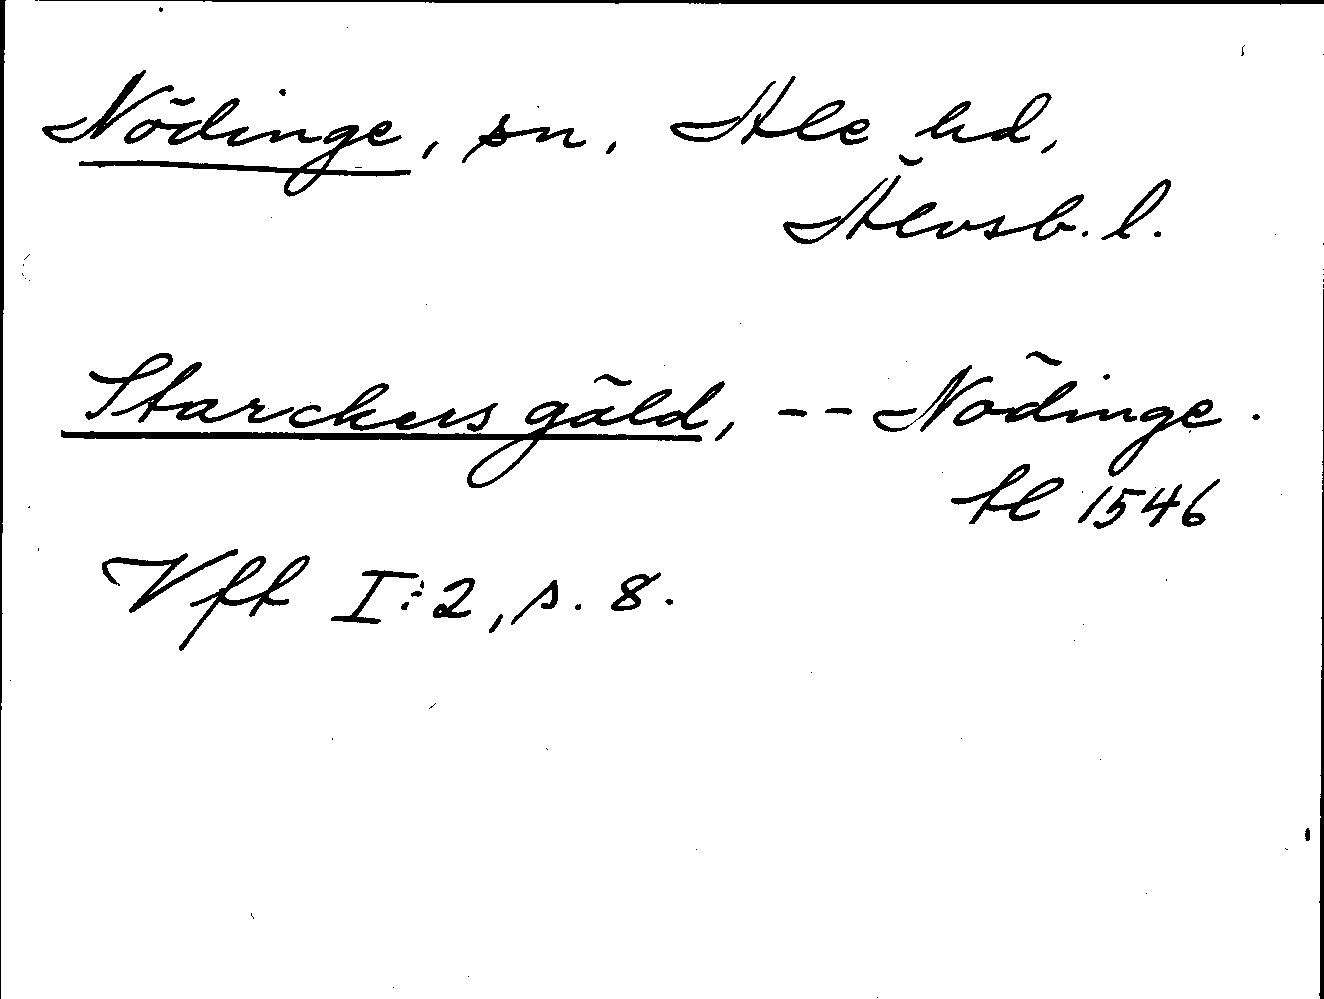 Nödinge, sn, Ale hd,
Älvsb. l.
Starckers gäld, -- Nödinge.
tl 1546
Vff I:2, s. 8.